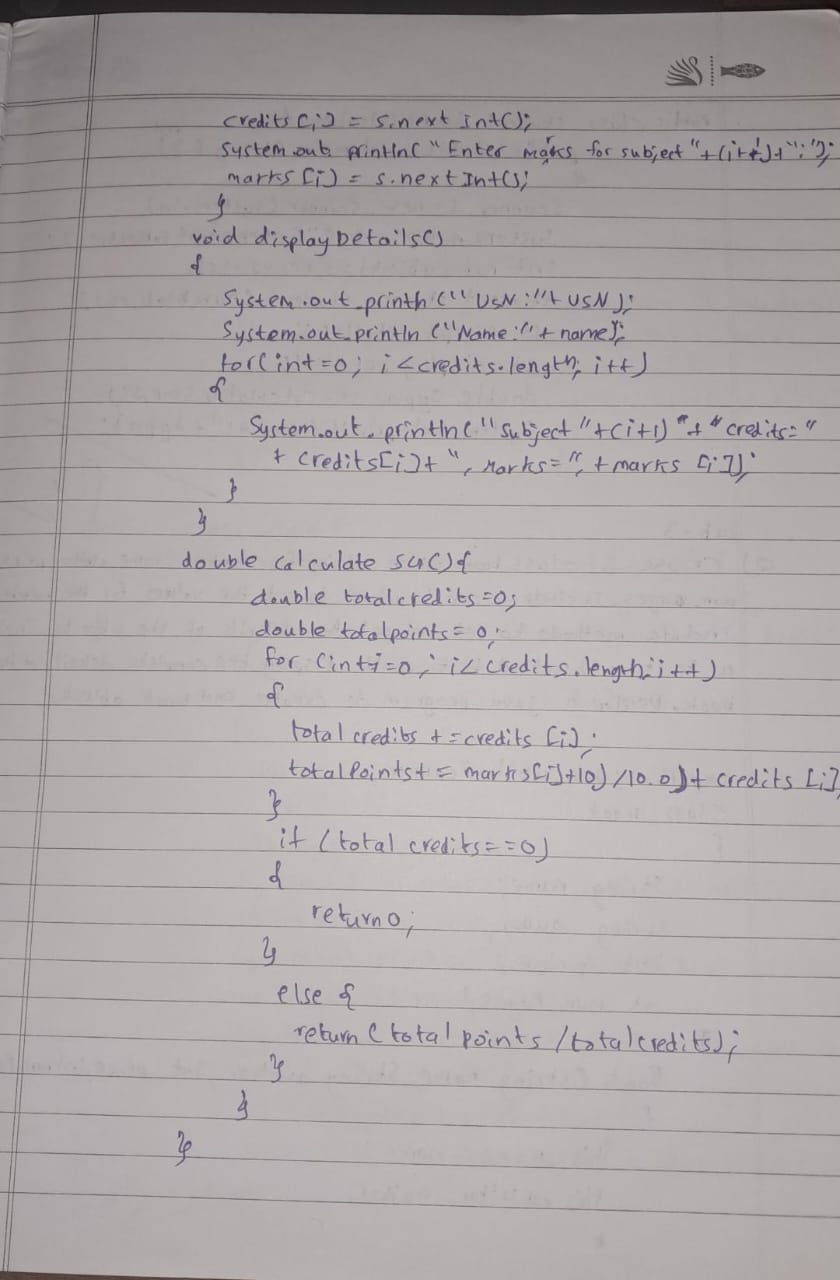 credits [i] = s.next Int();
System.out. println("Enter maks for subject "+(i++)+":");
marks [i] = s.nextInt();
}
void displayDetails()
{
System.out.println (" USN :"+ USN );
System.out.println ("Name:"+ name);
for(int=0; i<credits.length; i++)
{
System.out.println(" subject "+(i+1) "+" credits="
+ credits[i]+ ", Marks=", + marks [i]);
}
}
double calculate SG(){
double totalcredits=0;
double totalpoints= 0;
for (int i=0; i< credits.length; i++)
{
total credits +=credits [i];
totalPoints+ = marks[i]+10) /10.0)+ credits [i]
}
if (total credits==0)
{
return 0;
}
else {
return (total points /totalcredits);
}
}
}